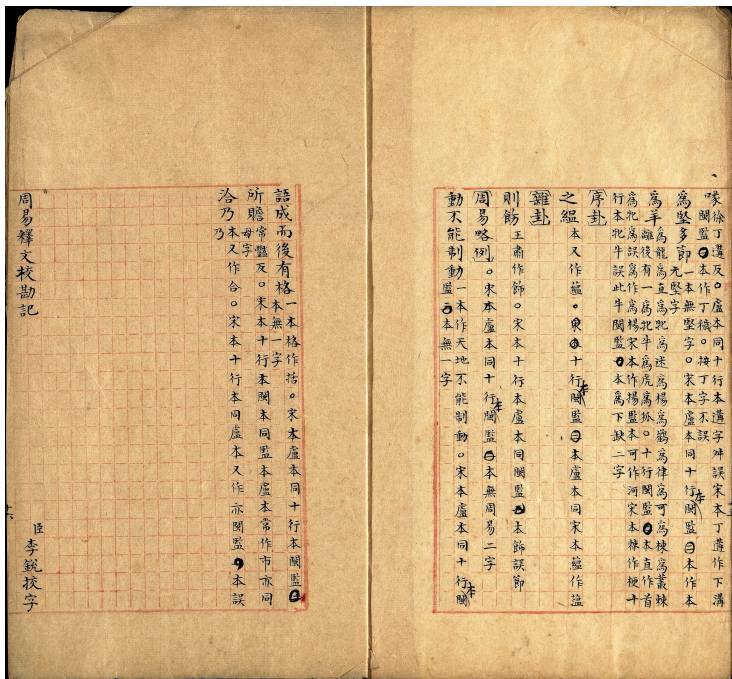 喙徐丁遘反○盧本同十行本遘字舛誤宋本丁遘作下溝
閩監本作丁穢○按丁字不誤
爲堅多節一本無堅字○宋本盧本同十行本閩監本作本
无堅字
爲羊爲龍爲直爲牝爲迷爲楊爲鸛爲律爲可爲棟爲叢棘
離後有一爲牝牛爲虎爲狐○十行閩監本直作首
爲牝爲誤爲作爲楊宋本作楊監本可作河宋本棘作梗十
行本牝牛誤此牛閩監本爲下缺二字
序卦
之緼本又作蘊○十行本閩監本盧本同宋本蘊作藴
雜卦
則飭王肅作飾○宋本十行本盧本同閩監本飾誤節
周易略例○宋本盧本同十行本閩監本無周易二字
動不能制動一本作天地不能制動○宋本盧本同十行本閩
監本無一字
語成而後有格一本格作括○宋本盧本同十行本閩監
本無一字
所贍常豔反○宋本十行本閩本同監本盧本常作市亦同
毋字
洽乃本又作合○宋本十行本同盧本又作亦閩監本誤
乃
周易釋文校勘記
臣李銳挍字